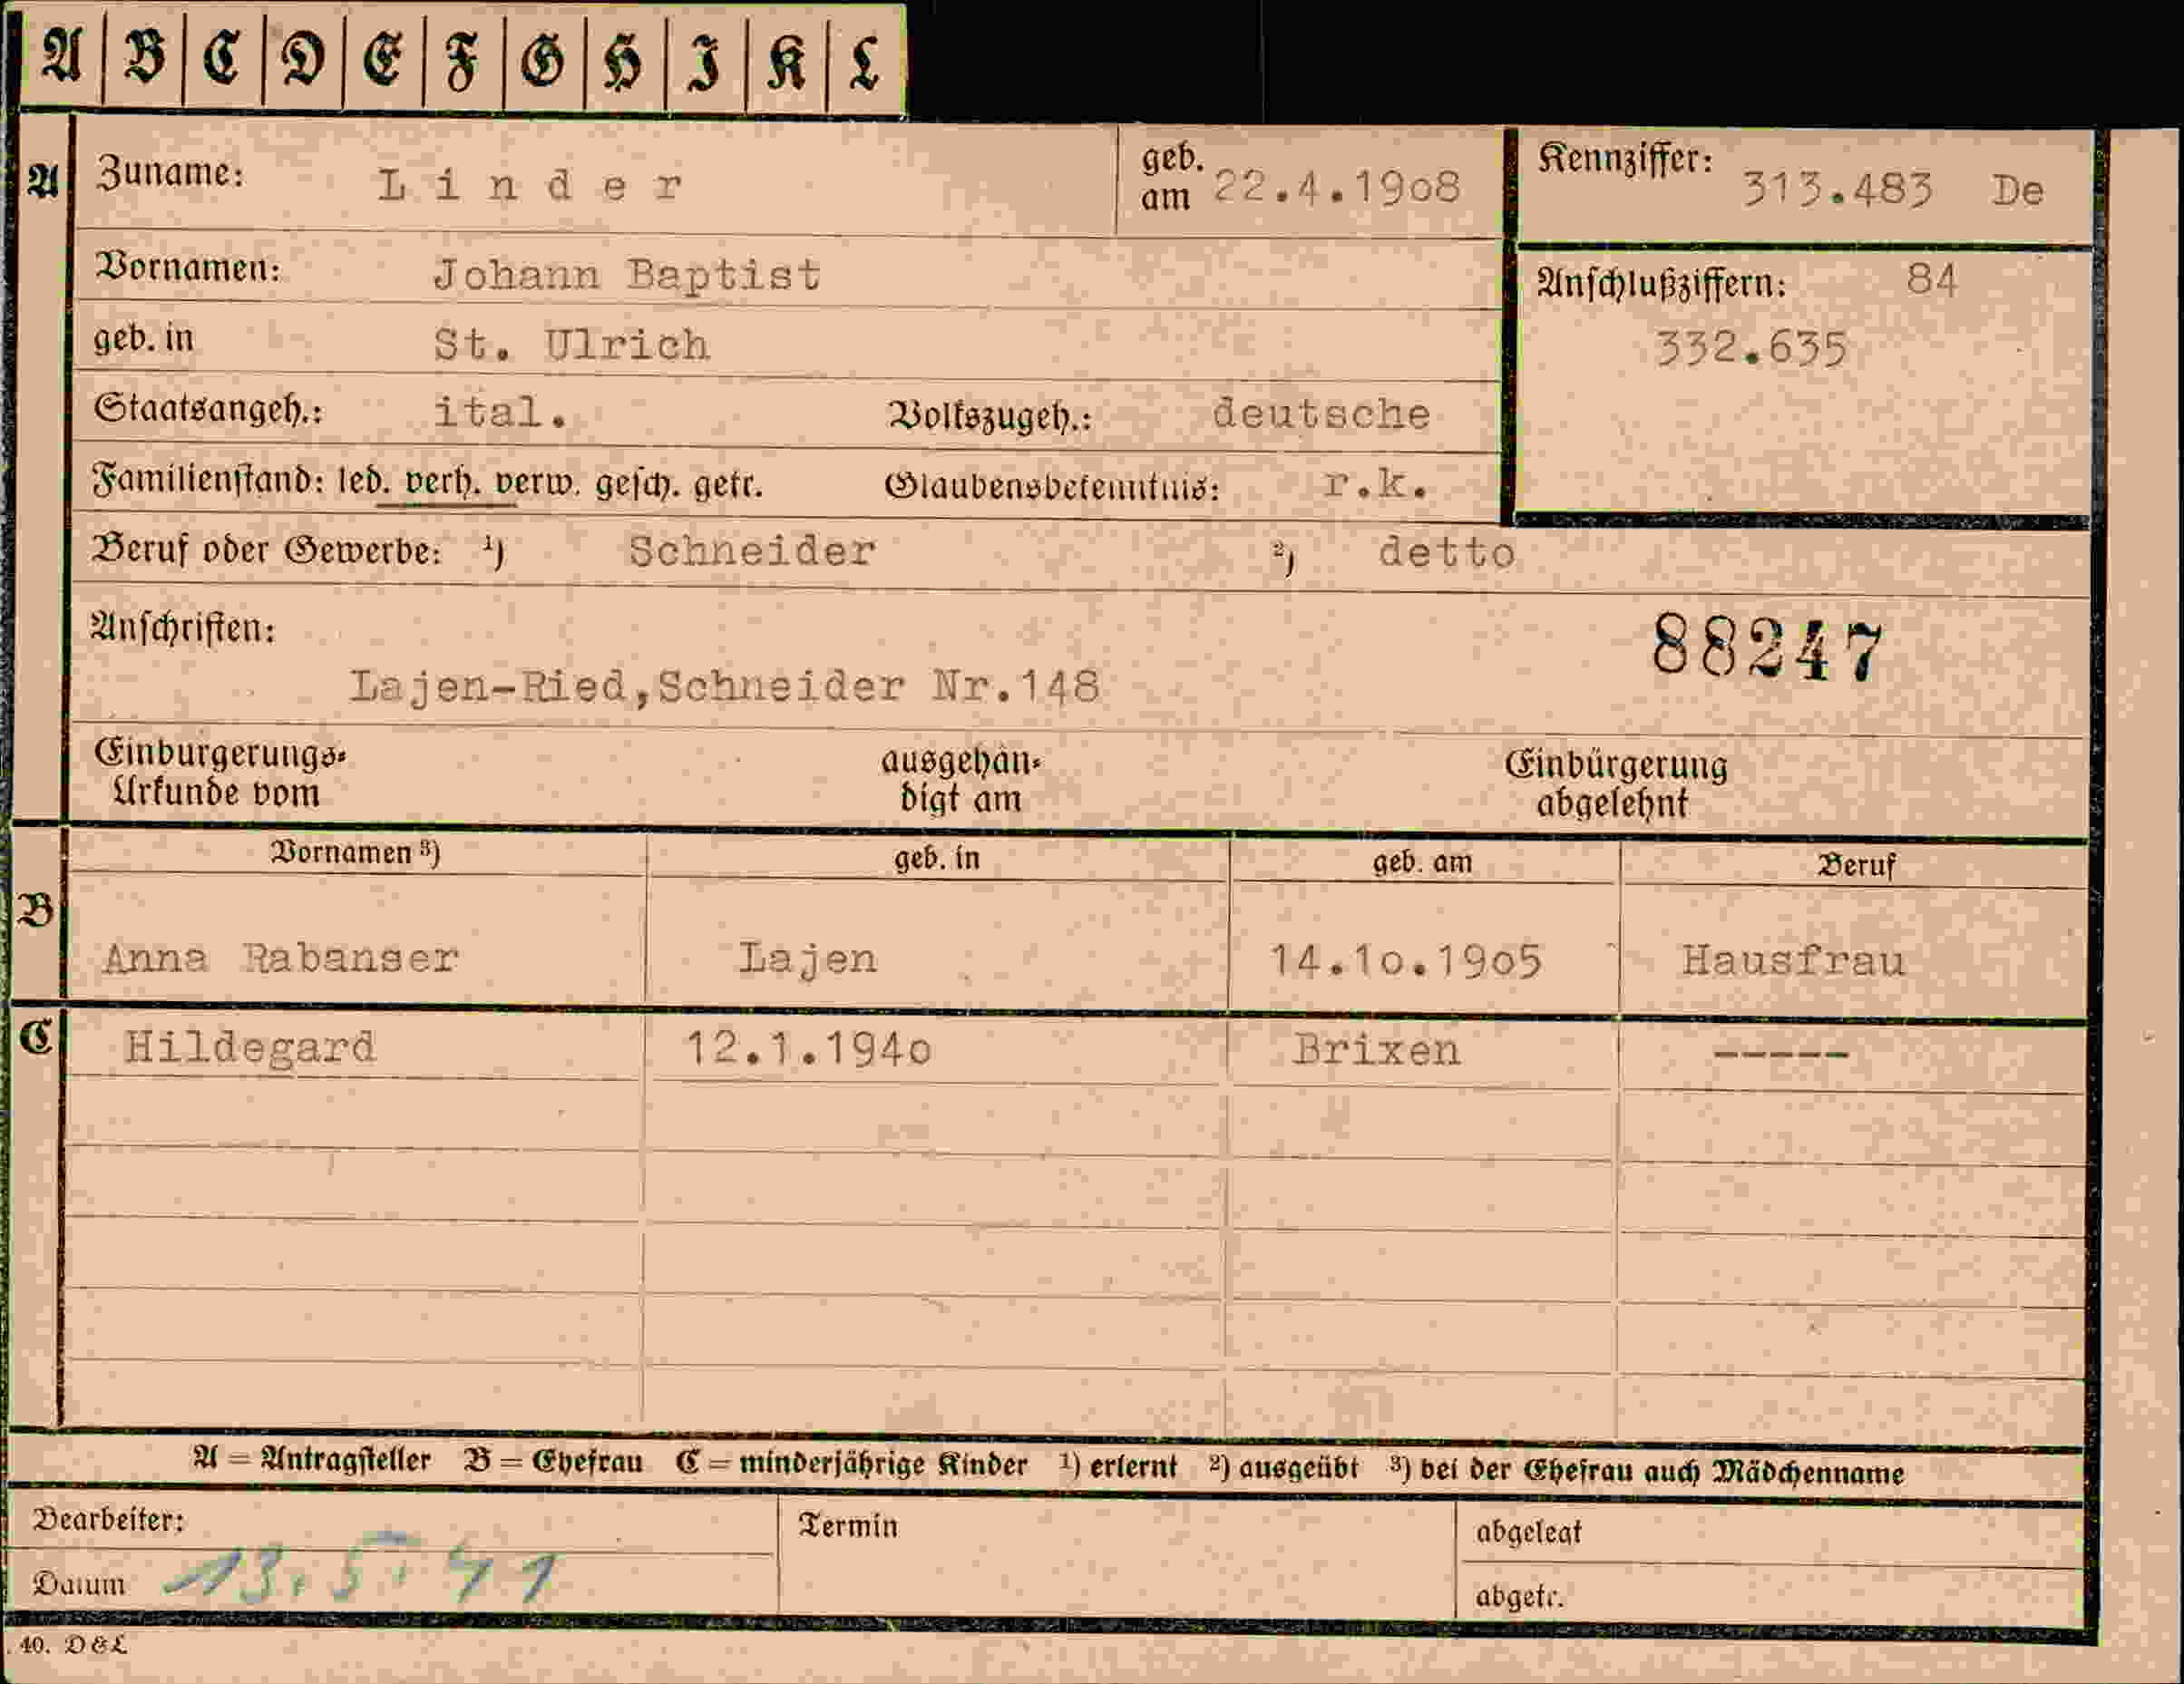 A B C D E F G H I K L
A Zuname: Linder geb. am 22.4.1908 Kennziffer: 313.483 De
Vornamen: Johann Baptist Anschlußziffern: 84
geb. in St. Ulrich 332.635
Staatsangeh.: ital. Volkszugeh.: deutsche
Familienstand: led. verh. verw. gesch. getr. Glaubensbekenntnis: r.k.
Beruf oder Gewerbe: ¹) Schneider ²) detto
Anschriften: 88247
Lajen-Ried,Schneider Nr.148
Einbürgerungs- ausgehän- Einbürgerung
Urkunde vom digt am abgelehnt
Vornamen ³) geb. in geb. am Beruf
B
Anna Rabanser Lajen 14.10.1905 Hausfrau
C Hildegard 12.1.1940 Brixen -----
A = Antragsteller B = Ehefrau C = minderjährige Kinder ¹) erlernt ²) ausgeübt ³) bei der Ehefrau auch Mädchenname
Bearbeiter: Termin abgelegt
Datum 13.5.41 abgetr.
40. D&L